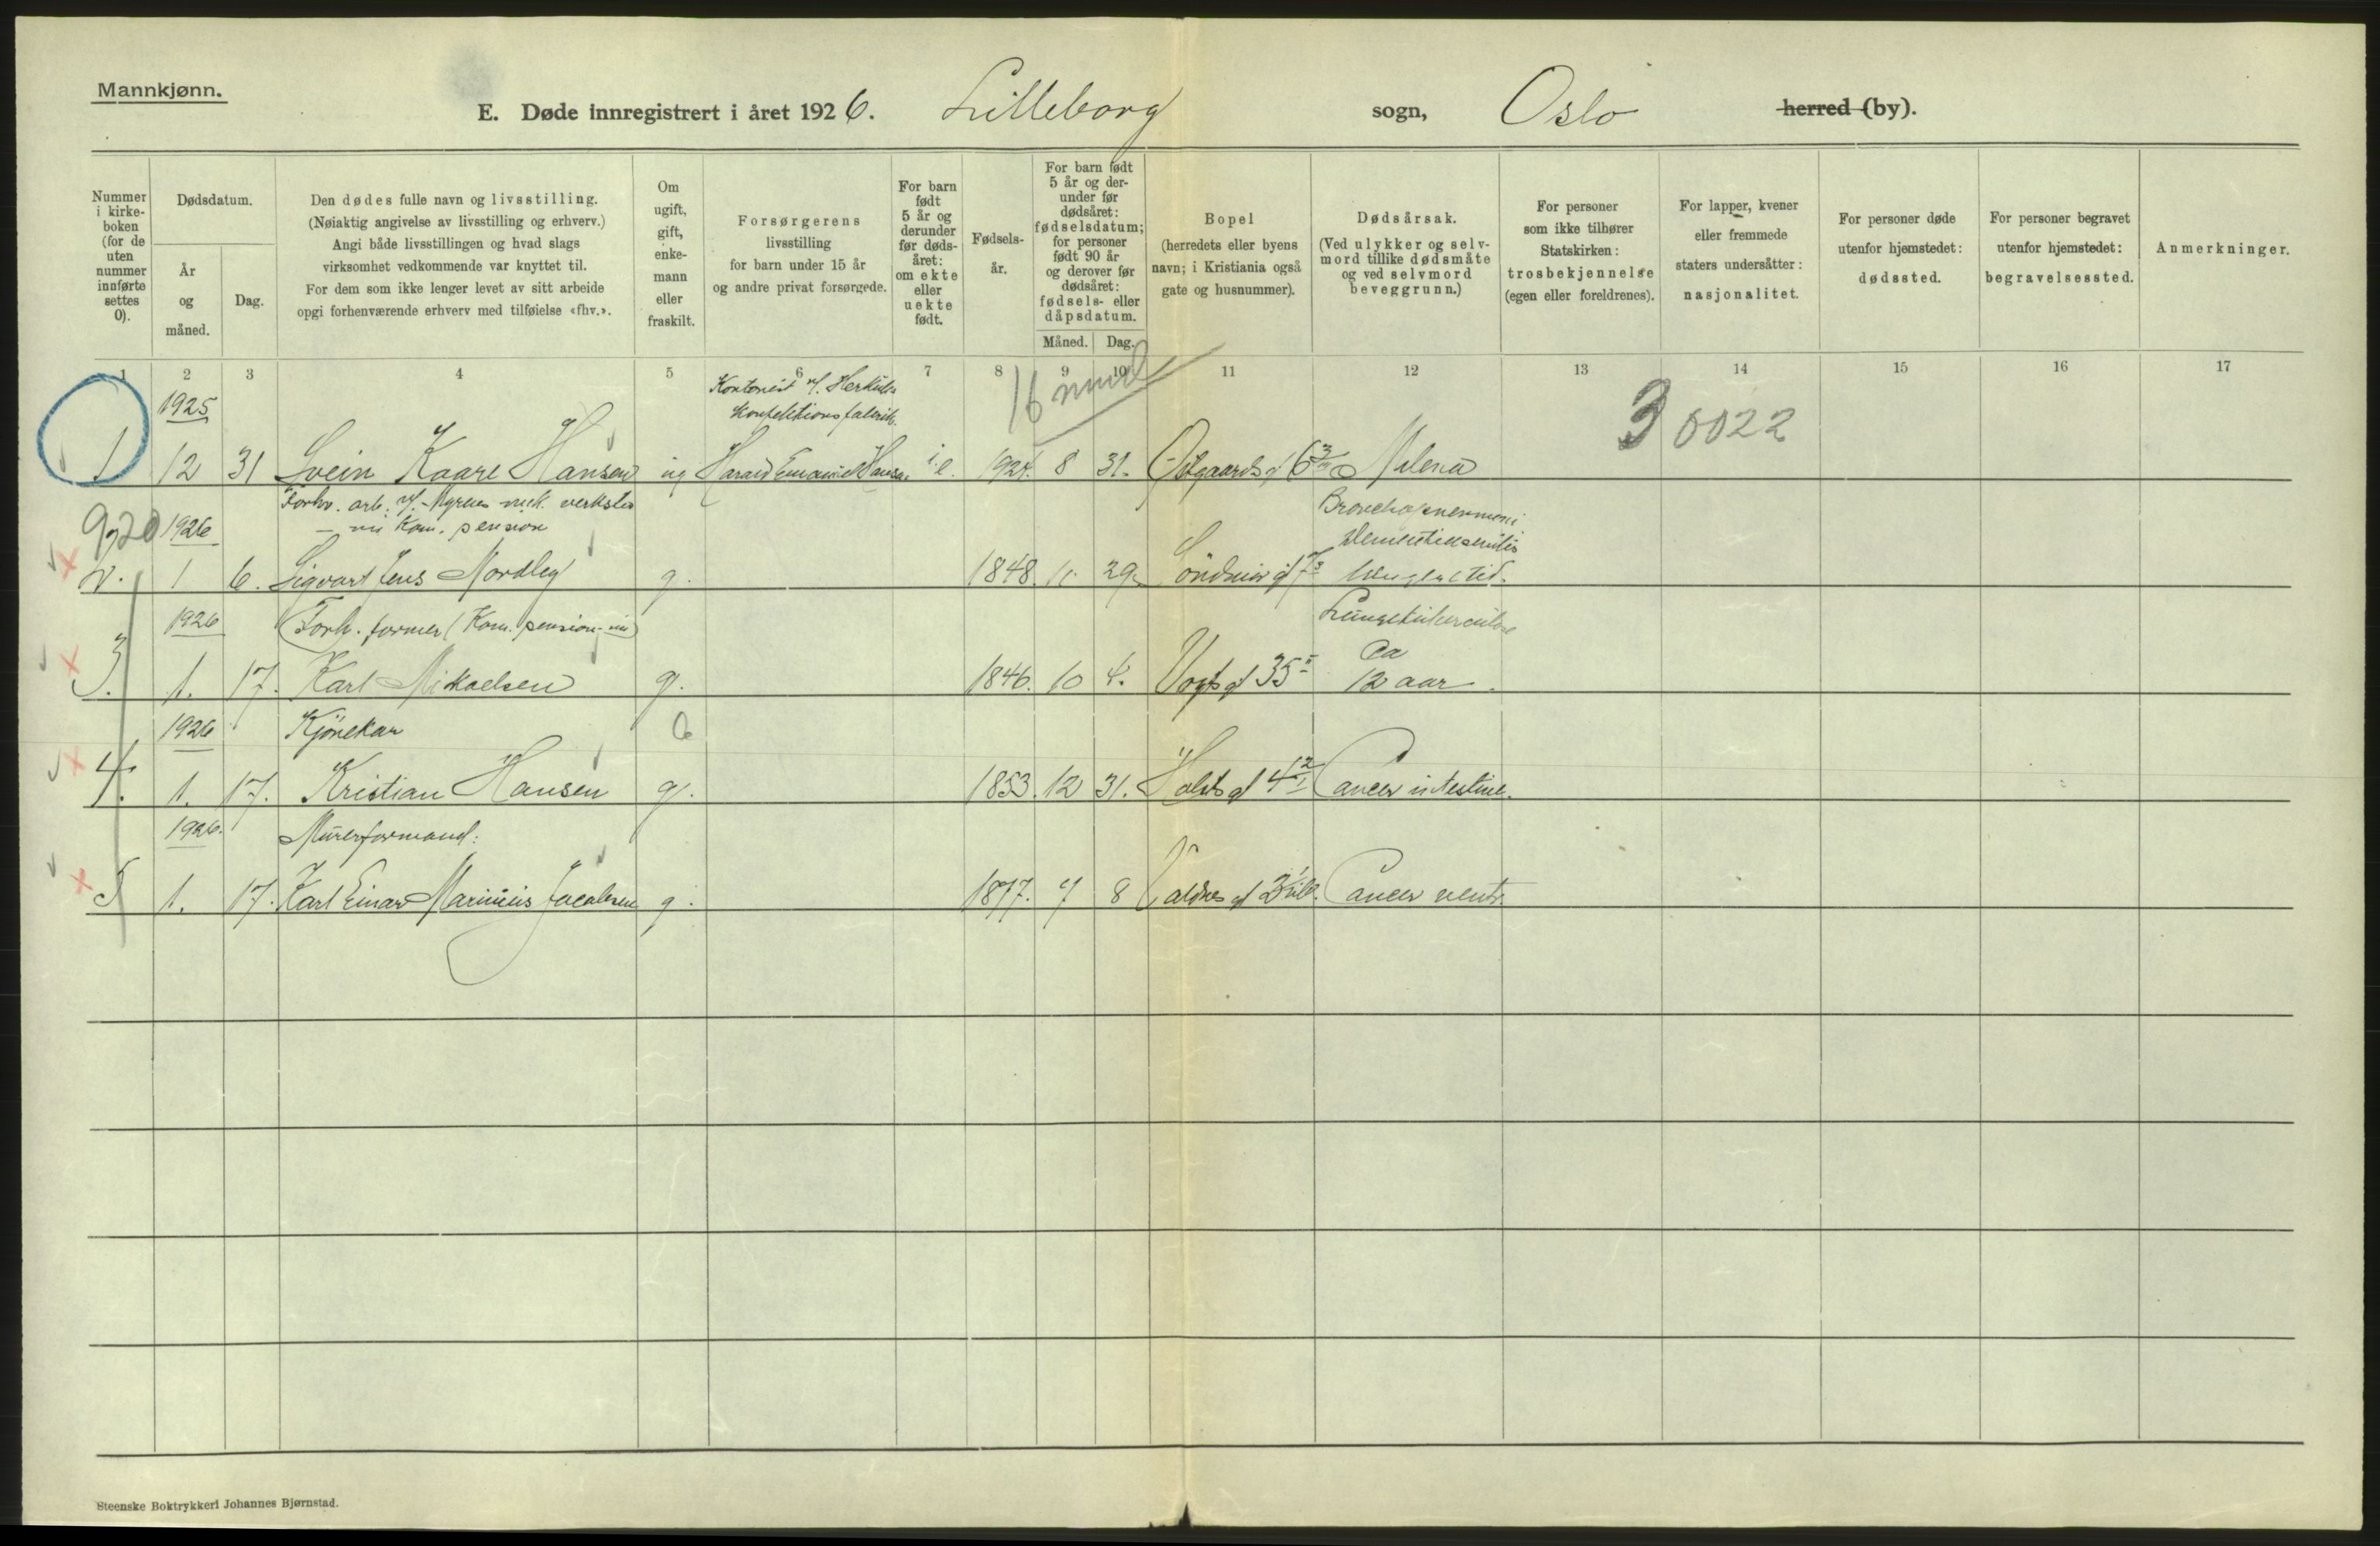 Mannkjønn.
E. Døde innregistrert i året 1926. Lilleborg sogn, Oslo herred (by).
Nummer i kirke-boken (for de uten nummer innførte settes 0).
Dødsdatum.
År og måned.
Dag.
Den dødes fulle navn og livsstilling.
(Nøiaktig angivelse av livsstilling og erhverv.)
Angi både livsstillingen og hvad slags
virksomhet vedkommende var knyttet til.
For dem som ikke lenger levet av sitt arbeide
opgi forhenværende erhverv med tilføielse «fhv.».
Om ugift, gift, enke-mann eller fraskilt.
Forsørgerens
livsstilling
for barn under 15 år
og andre privat forsørgede.
For barn født 5 år og derunder før døds-året: om ekte eller uekte født.
Fødsels-år.
For barn født 5 år og der-under før dødsåret: fødselsdatum; for personer født 90 år og derover før dødsåret: fødsels- eller dåpsdatum.
Måned. Dag.
Bopel
(herredets eller byens
navn; i Kristiania også
gate og husnummer).
Dødsårsak.
(Ved ulykker og selv-
mord tillike dødsmåte
og ved selvmord
beveggrunn.)
For personer
som ikke tilhører
Statskirken:
trosbekjennelse
(egen eller foreldrenes).
For lapper, kvener
eller fremmede
staters undersåtter:
nasjonalitet.
For personer døde
utenfor hjemstedet:
dødssted.
For personer begravet
utenfor hjemstedet:
begravelsessted.
Anmerkninger.
1 2 3 4 5 6 7 8 9 10 11 12 13 14 15 16 17
1925 Kontorist v/. Herkules
Konfektionsfabrik. 16 mnd 3 0022
1 12 31 Svein Kaare Hansen ug Harald Emanuel Hansen i.e. 1924. 8 31. Østgaards g 6 Melena
Forhv. arb. v/. Myrens mek. verksted Bronchopnevmoni
920 1926 – nu Kom. pension Dementia senilis
2. 1 6. Sigvart Jens Nordby g. 1848. 11. 29. Söndre g 7 længere tid.
1926 (Forh. former (Kom. pension nu) Lungetuberculose
ca
3. 1. 17. Karl Mikaelsen g. 1846. 10 4. Vogts g 35 II 12 aar.
1926 Kjörekar 6
4. 1. 17. Kristian Hansen g. 1853. 12 31. Holsts g 4 Cancer intestine.
1926. Murerformand.
5 1. 17. Karl Einar Marinius Jacobsen g. 1877. 7 8 Valdres g 3 Cancer ventr.
Steenske Boktrykkeri Johannes Bjørnstad.